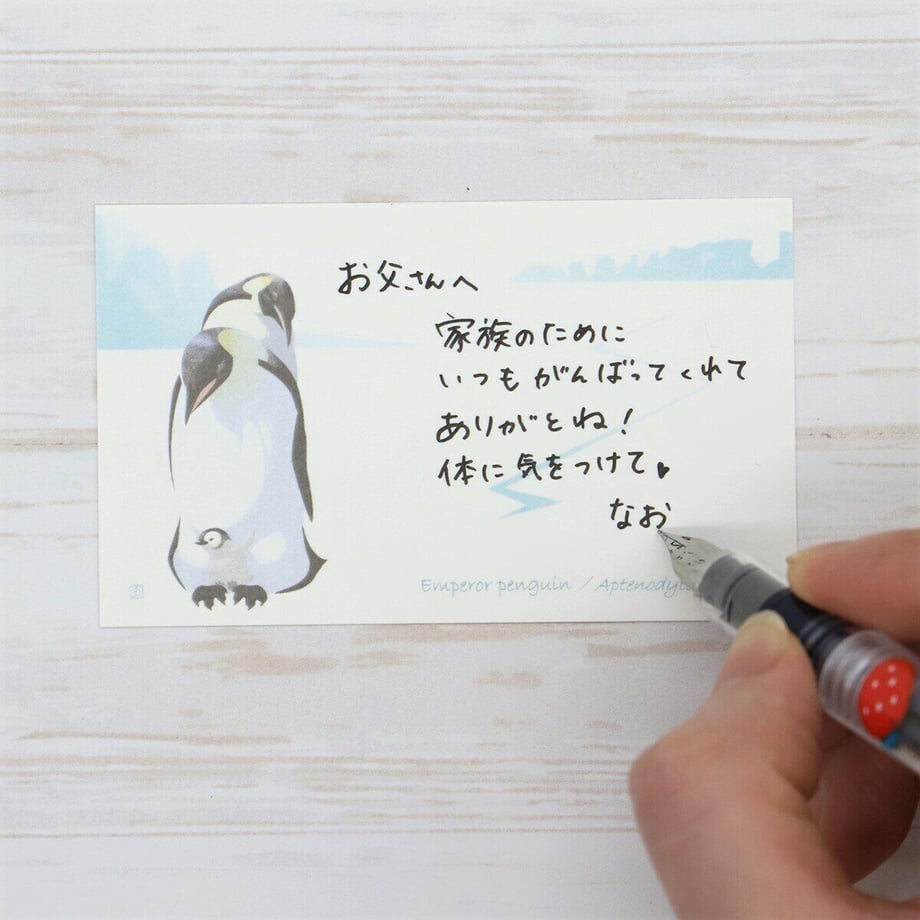 お父さんへ
家族のために
いつもがんばってくれて
ありがとね!
体に気をつけて♥
なお
Emperor penguin /